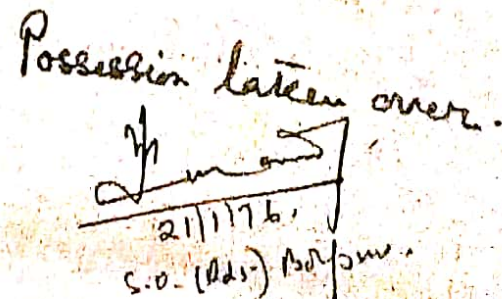 Possession taken over.
21/1/76.
S.O. (Rds.)